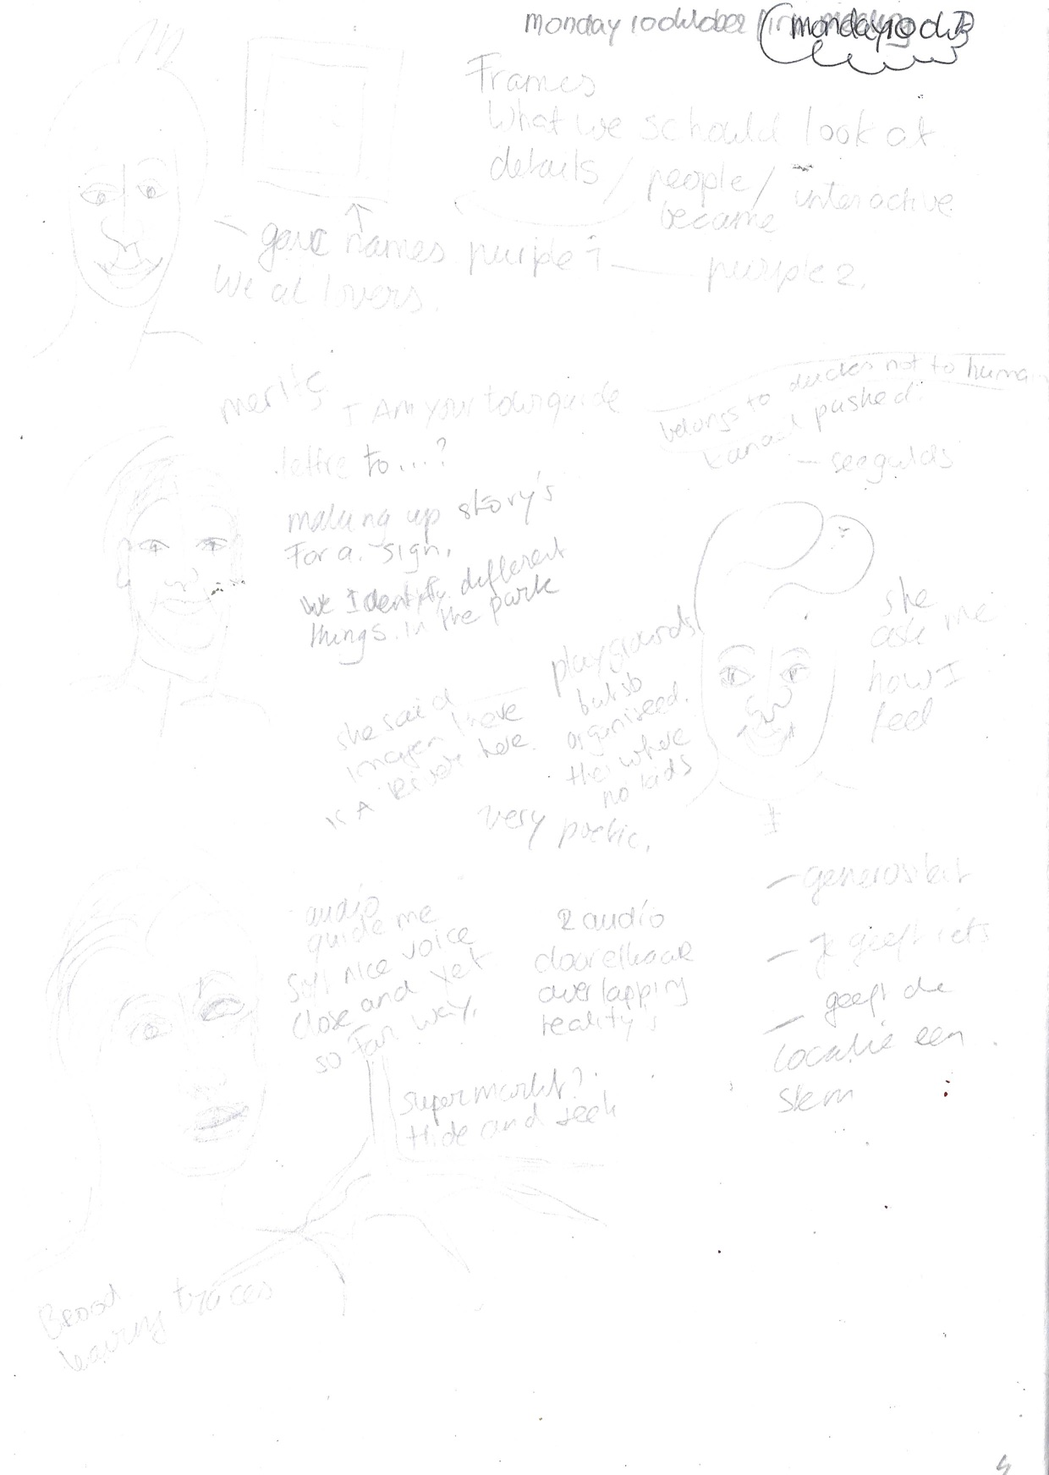 monday 10 october
monday 10 oct
Frames
What we schould look at
details / people / interactive
became
gave names purple 1 — purple 2.
We al lovers.
merits
I Am your tourguide
belongs to duckes not to human
kanaal pushed.
— seegulds
lettre to...?
making up story's
For a sign.
We Identify different
things in the park
she
ask me
how I
feel
playgrounds
but so
organiseed.
ther where
no kids
she said
imagen I neve
is A River here.
very poetic.
audio
guide me
Syl nice voice
close and yet
so far way.
2 audio
doorelkaar
overlapping
reality's
supermarkt?
Hide and seek
— generositeit
— Je geeft iets
— geeft de
locatie een
stem
Brood
leaving traces